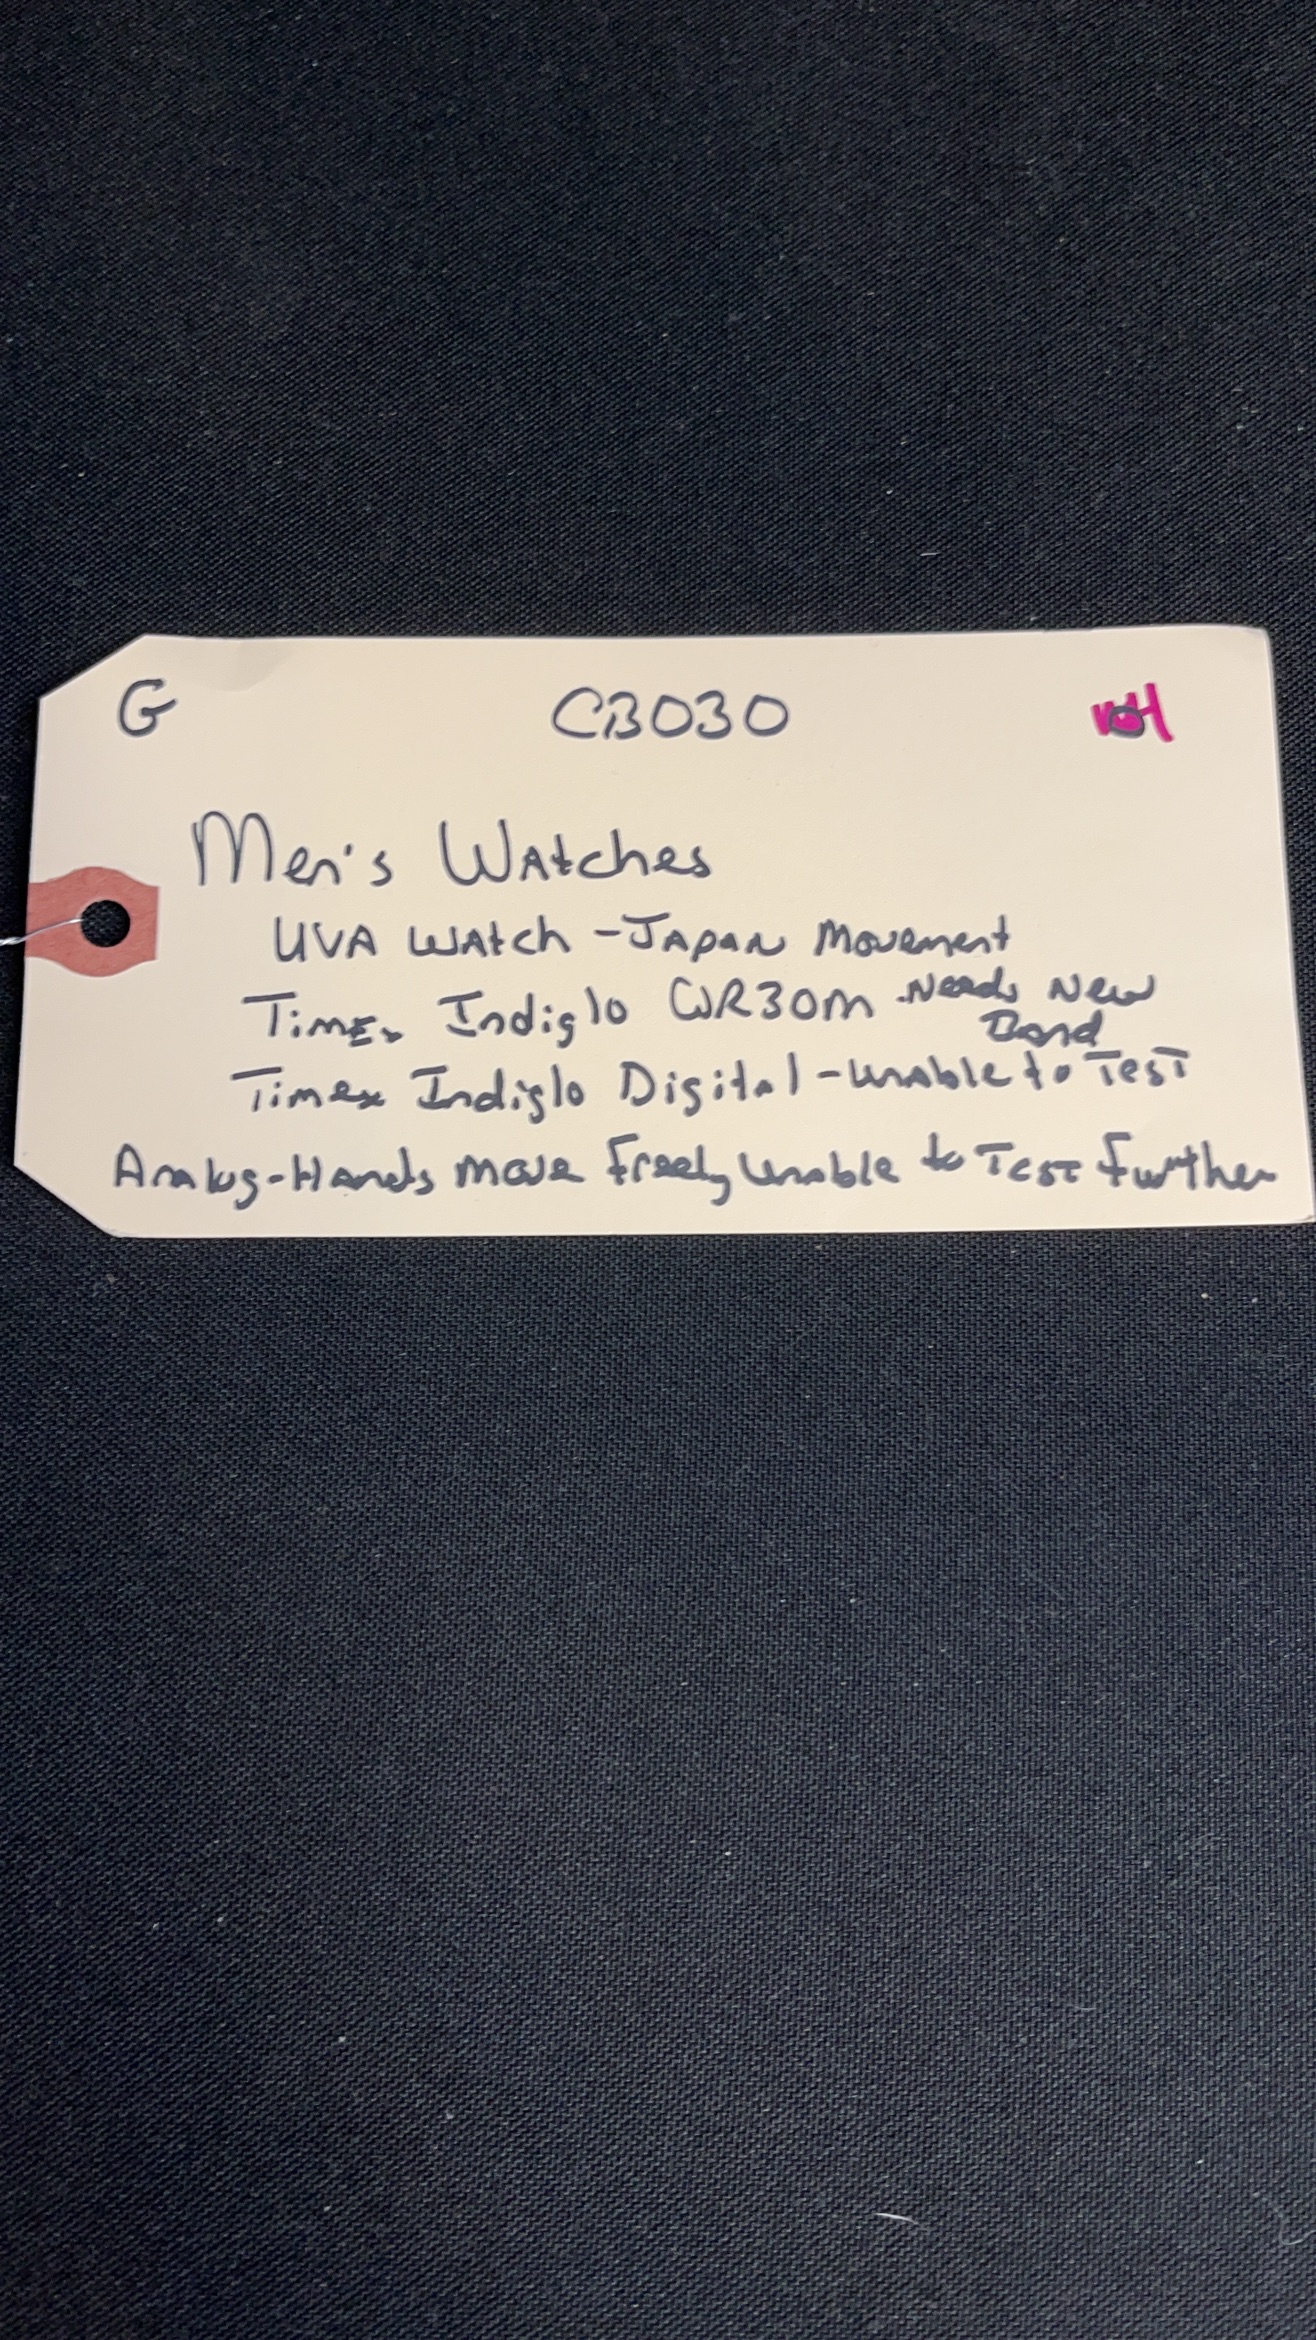 G CB030
Men's Watches
UVA Watch - Japan Movement
Timex Indiglo WR30M Needs New
Band
Timex Indiglo Digital - Unable to Test
Analog - Hands Move Freely Unable to Test Further